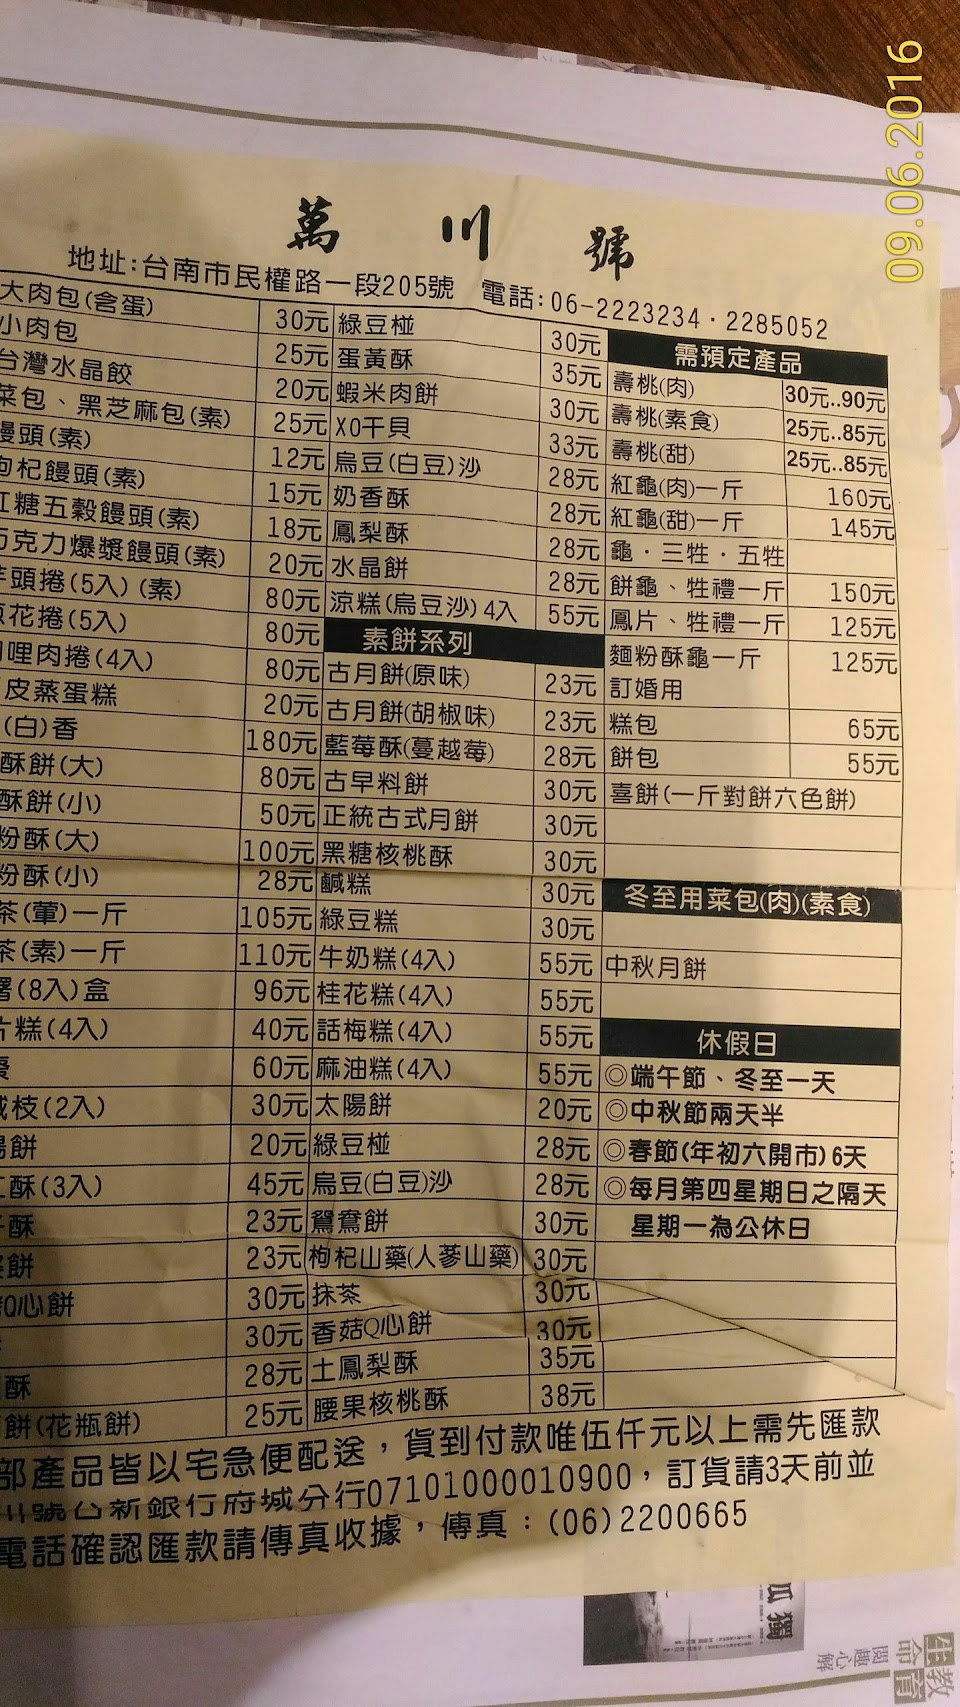 09.06.2016
萬川號
地址:台南市民權路一段205號 電話:06-2223234·2285052
大肉包(含蛋) 30元
小肉包 25元
台灣水晶餃 20元
菜包、黑芝麻包(素) 25元
饅頭(素) 12元
枸杞饅頭(素) 15元
紅糖五穀饅頭(素) 18元
巧克力爆漿饅頭(素) 20元
芋頭捲(5入)(素) 80元
蔥花捲(5入) 80元
咖哩肉捲(4入) 80元
皮蒸蛋糕 20元
(白)香 180元
酥餅(大) 80元
酥餅(小) 50元
粉酥(大) 100元
粉酥(小) 28元
茶(葷)一斤 105元
茶(素)一斤 110元
(8入)盒 96元
片糕(4入) 40元
棗 60元
枝(2入) 30元
陽餅 20元
酥(3入) 45元
酥 23元
餅 23元
Q心餅 30元
30元
酥 28元
餅(花瓶餅) 25元
綠豆椪 30元
蛋黃酥 35元
蝦米肉餅 30元
XO干貝 33元
烏豆(白豆)沙 28元
奶香酥 28元
鳳梨酥 28元
水晶餅 28元
涼糕(烏豆沙)4入 55元
素餅系列
古月餅(原味) 23元
古月餅(胡椒味) 23元
藍莓酥(蔓越莓) 28元
古早料餅 30元
正統古式月餅 30元
黑糖核桃酥 30元
鹹糕 30元
綠豆糕 30元
牛奶糕(4入) 55元
桂花糕(4入) 55元
話梅糕(4入) 55元
麻油糕(4入) 55元
太陽餅 20元
綠豆椪 28元
烏豆(白豆)沙 28元
鴛鴦餅 30元
枸杞山藥(人蔘山藥) 30元
抹茶 30元
香菇Q心餅 30元
土鳳梨酥 35元
腰果核桃酥 38元
需預定產品
壽桃(肉) 30元..90元
壽桃(素食) 25元..85元
壽桃(甜) 25元..85元
紅龜(肉)一斤 160元
紅龜(甜)一斤 145元
龜·三牲·五牲
餅龜、牲禮一斤 150元
鳳片、牲禮一斤 125元
麵粉酥龜一斤 125元
訂婚用
糕包 65元
餅包 55元
喜餅(一斤對餅六色餅)
冬至用菜包(肉)(素食)
中秋月餅
休假日
◎端午節、冬至一天
◎中秋節兩天半
◎春節(年初六開市)6天
◎每月第四星期日之隔天
星期一為公休日
部產品皆以宅急便配送，貨到付款唯伍仟元以上需先匯款
川號台新銀行府城分行07101000010900，訂貨請3天前並
電話確認匯款請傳真收據，傳真：(06)2200665
孤獨
生命教育
閱趣心解